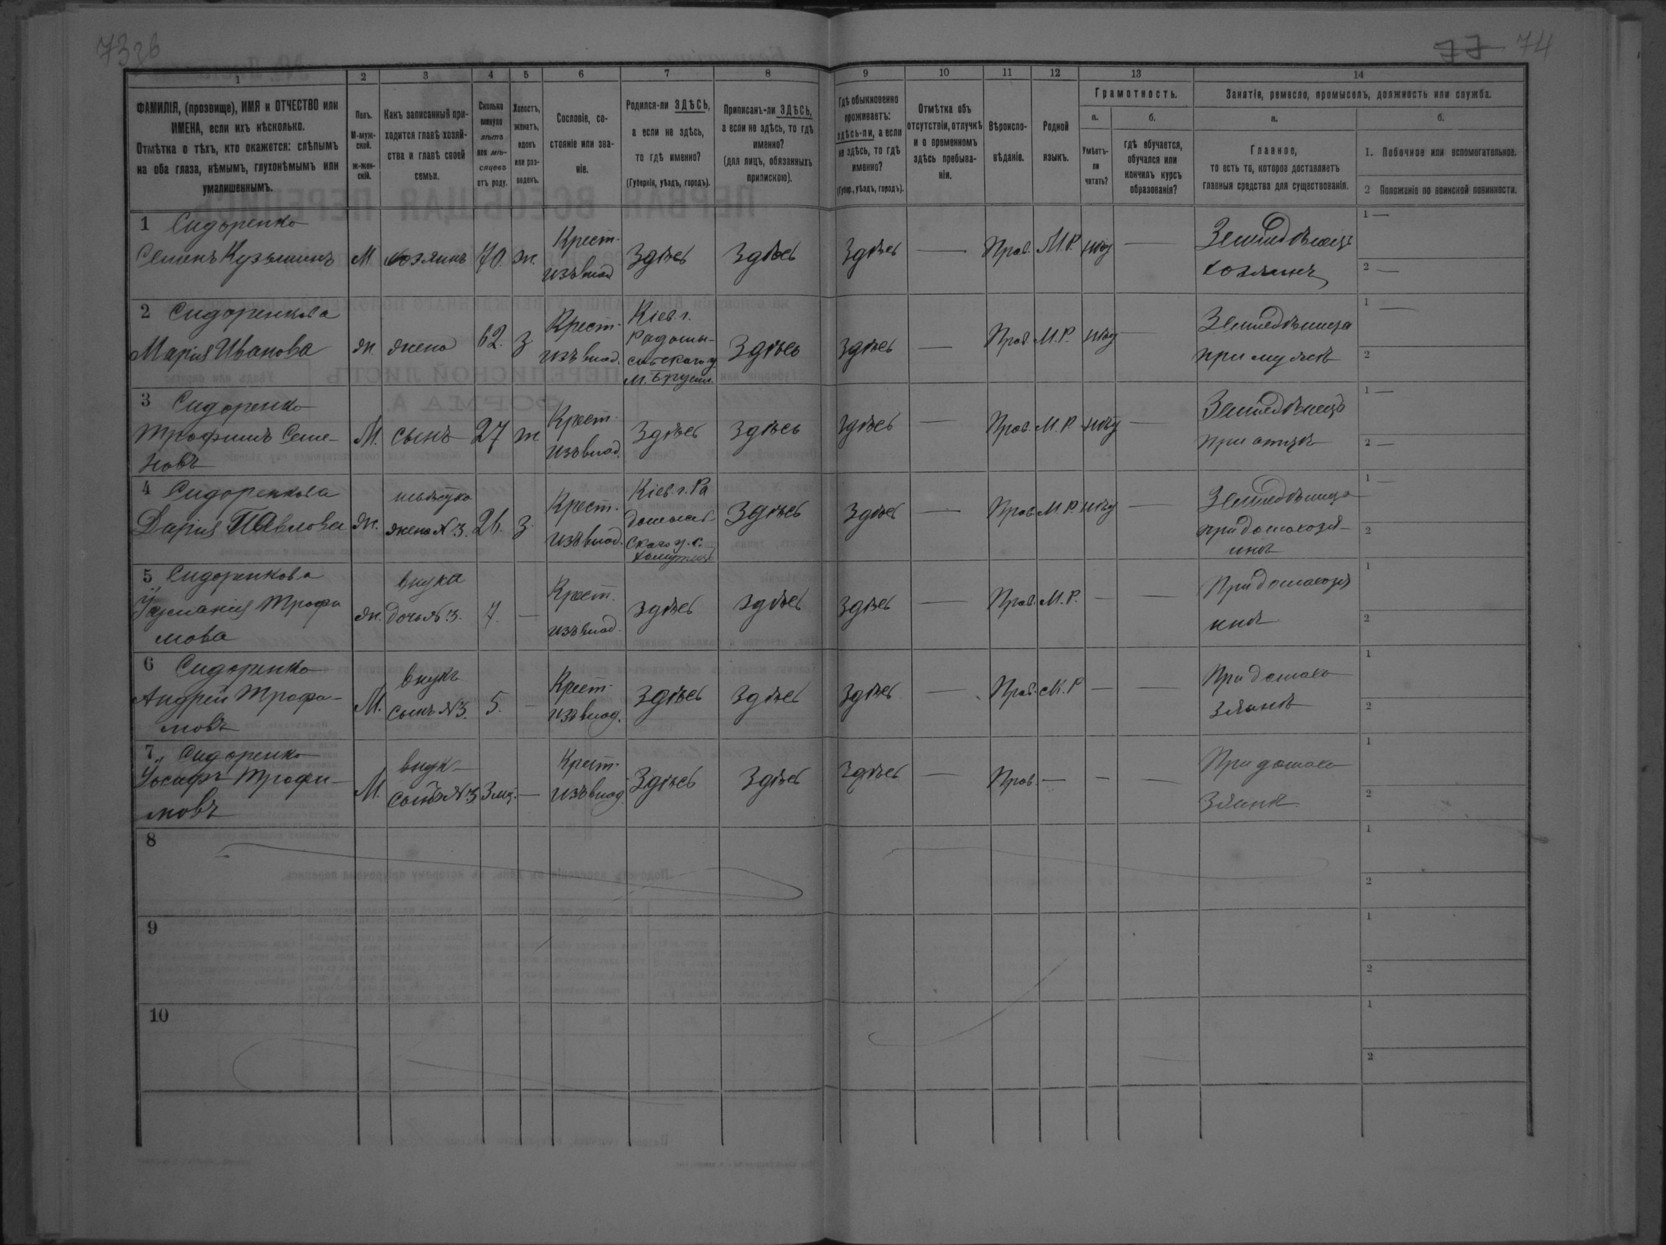 73 об
77 74
1 2 3 4 5 6 7 8 9 10 11 12 13 14
ФАМИЛІЯ, (прозвище), ИМЯ и ОТЧЕСТВО или
ИМЕНА, если ихъ нѣсколько.
Отмѣтка о тѣхъ, кто окажется: слѣпымъ
на оба глаза, нѣмымъ, глухонѣмымъ или
умалишеннымъ.
Полъ.
М-муж-
ской.
ж-жен-
скій.
Какъ записанный при-
ходится главѣ хозяй-
ства и главѣ своей
семьи.
Сколько
минуло
лѣтъ
или мѣ-
сяцевъ
отъ роду.
Холостъ,
женатъ,
вдовъ
или раз-
веденъ.
Сословіе, со-
стояніе или зва-
ніе.
Родился-ли ЗДѢСЬ,
а если не здѣсь,
то гдѣ именно?
(Губернія, уѣздъ, городъ).
Приписанъ-ли ЗДѢСЬ,
а если не здѣсь, то гдѣ
именно?
(для лицъ, обязанныхъ
припискою).
Гдѣ обыкновенно
проживаетъ:
здѣсь-ли, а если
не здѣсь, то гдѣ
именно?
(Губер., уѣздъ, городъ).
Отмѣтка объ
отсутствіи, отлучкѣ
и о временномъ
здѣсь пребыва-
ніи.
Вѣроиспо-
вѣданіе.
Родной
языкъ.
Грамотность.
а.
Умѣетъ-
ли
читать?
б.
гдѣ обучается,
обучался или
кончилъ курсъ
образованія?
Занятіе, ремесло, промыселъ, должность или служба.
а.
Главное,
то есть то, которое доставляетъ
главныя средства для существованія.
б.
1. Побочное или вспомогательное.
2 Положеніе по воинской повинности.
1 Сидоренко
Семенъ Кузьминъ М хозяинъ 70. ж. Крест. изъ влад Здѣсь Здѣсь Здѣсь — Прав. М.Р. нѣт — Земледѣлецъ
хозяинъ
1 —
2 —
2 Сидоренкова
Марія Иванова ж. жена 62. з Крест. изъ влад. Кіев г.
Радомы-
сльскаго у
м. Здѣсь Здѣсь — Прав М.Р. нѣт — Земледѣлица
при мужѣ
1 —
2
3 Сидоренко
Трофимъ Семе-
новъ М. сынъ 27 ж Крест. изъ влад. Здѣсь Здѣсь Здѣсь — Прав. М.Р. нѣт — Земледѣлецъ
при отцѣ
1 —
2 —
4 Сидоренкова
Дарія Павлова ж. невѣстка
жена №3. 26. з. Крест. изъ влад. Кіев г. Ра
домысль-
скаго у. с. Здѣсь Здѣсь — Прав М.Р. нѣт — Земледѣлица
при домохозя-
инѣ
1 —
2
5 Сидоренкова
Трофи
мова ж. внука
дочь №3. 7. — Крест. изъ влад. здѣсь здѣсь Здѣсь — Прав. М.Р. — — При домохозя
инѣ
1
2
6 Сидоренко
Андрей Трофи-
мовъ М. внукъ
сынъ №3. 5. — Крест. изъ влад. Здѣсь Здѣсь Здѣсь — Прав. М.Р — — При домохо
зяинѣ
1
2
7 Сидоренко
Іосифъ Трофи-
мовъ М. внукъ
сынъ №3 3 мц. — Крест. изъ влад. Здѣсь Здѣсь Здѣсь — Прав. — — — При домохо
зяинѣ
1
2
8
1
2
9
1
2
10
1
2